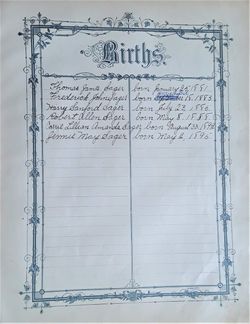 Births.
Thomas Jane Sager born January 25, 1881.
Frederick John Sager born 18, 1883.
Harry Sanford Sager born July 23, 1886.
Robert Allen Sager born May 8, 1888.
Lillian Amanda Sager born August 23,
Jennie May Sager born May 2, 1895.